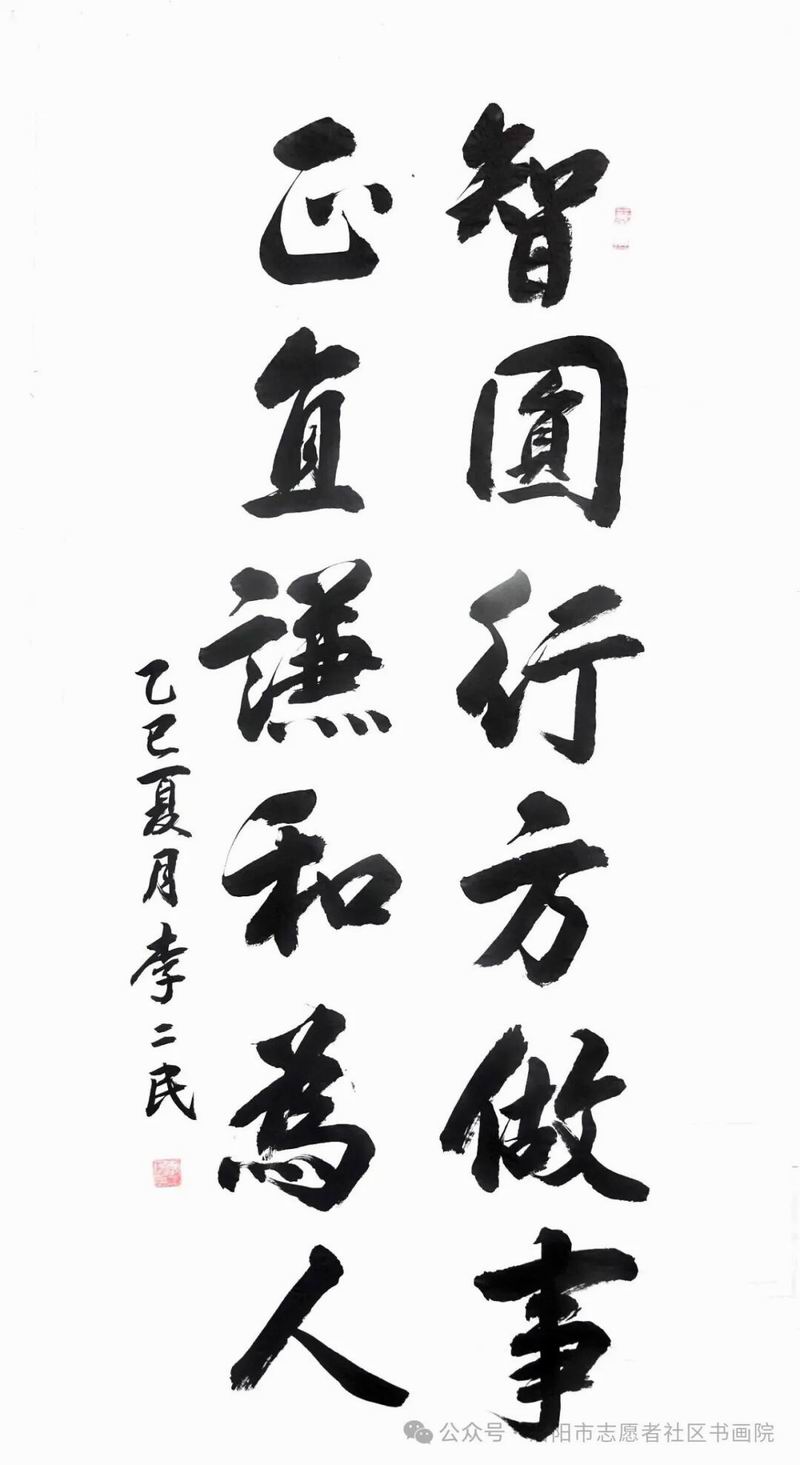 智圓行方做事
正直謙和為人
乙巳夏月李二民
公众号·阳市志愿者社区书画院